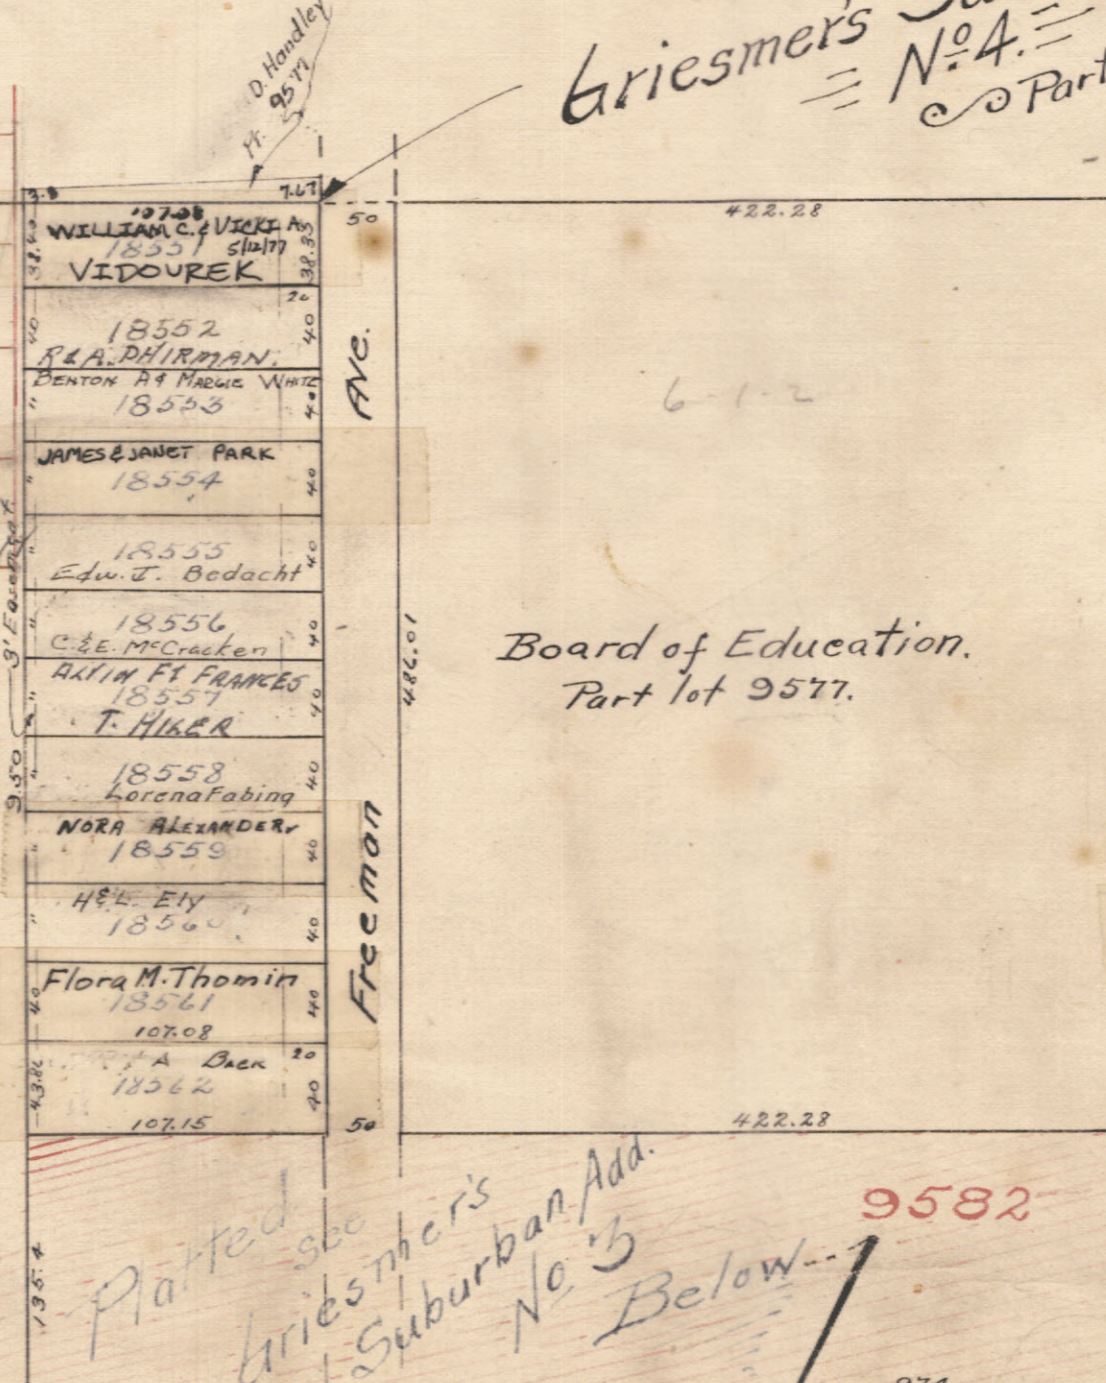 D. Handley
Pt. 9577
Griesmer's
No 4.
Part
3.8
7.67
107.08
WILLIAM C. & VICKI A.
18551 5/12/77
VIDOUREK
38.40
38.33
50
422.28
20
18552
40
40
R & A. DHIRMAN.
BENTON A & MARGIE WHITE
18553
"
40
JAMES & JANET PARK
18554
"
40
18555
"
40
Edw. J. Bedacht
18556
"
40
C. & E. McCracken
ALVIN F & FRANCES
18557
"
40
T. HIKER
18558
"
40
Lorena Fabing
NORA ALEXANDER
18559
"
40
H & L. Ely
1856
"
40
Flora M. Thomin
18561
40
40
107.08
A BACK
20
18562
43.86
40
107.15
50
3' Easement
950
Freeman Ave.
486.01
6-1-2
Board of Education.
Part lot 9577.
422.28
135.4
Platted
see
Griesmer's
Suburban Add.
No 3
Below
9582